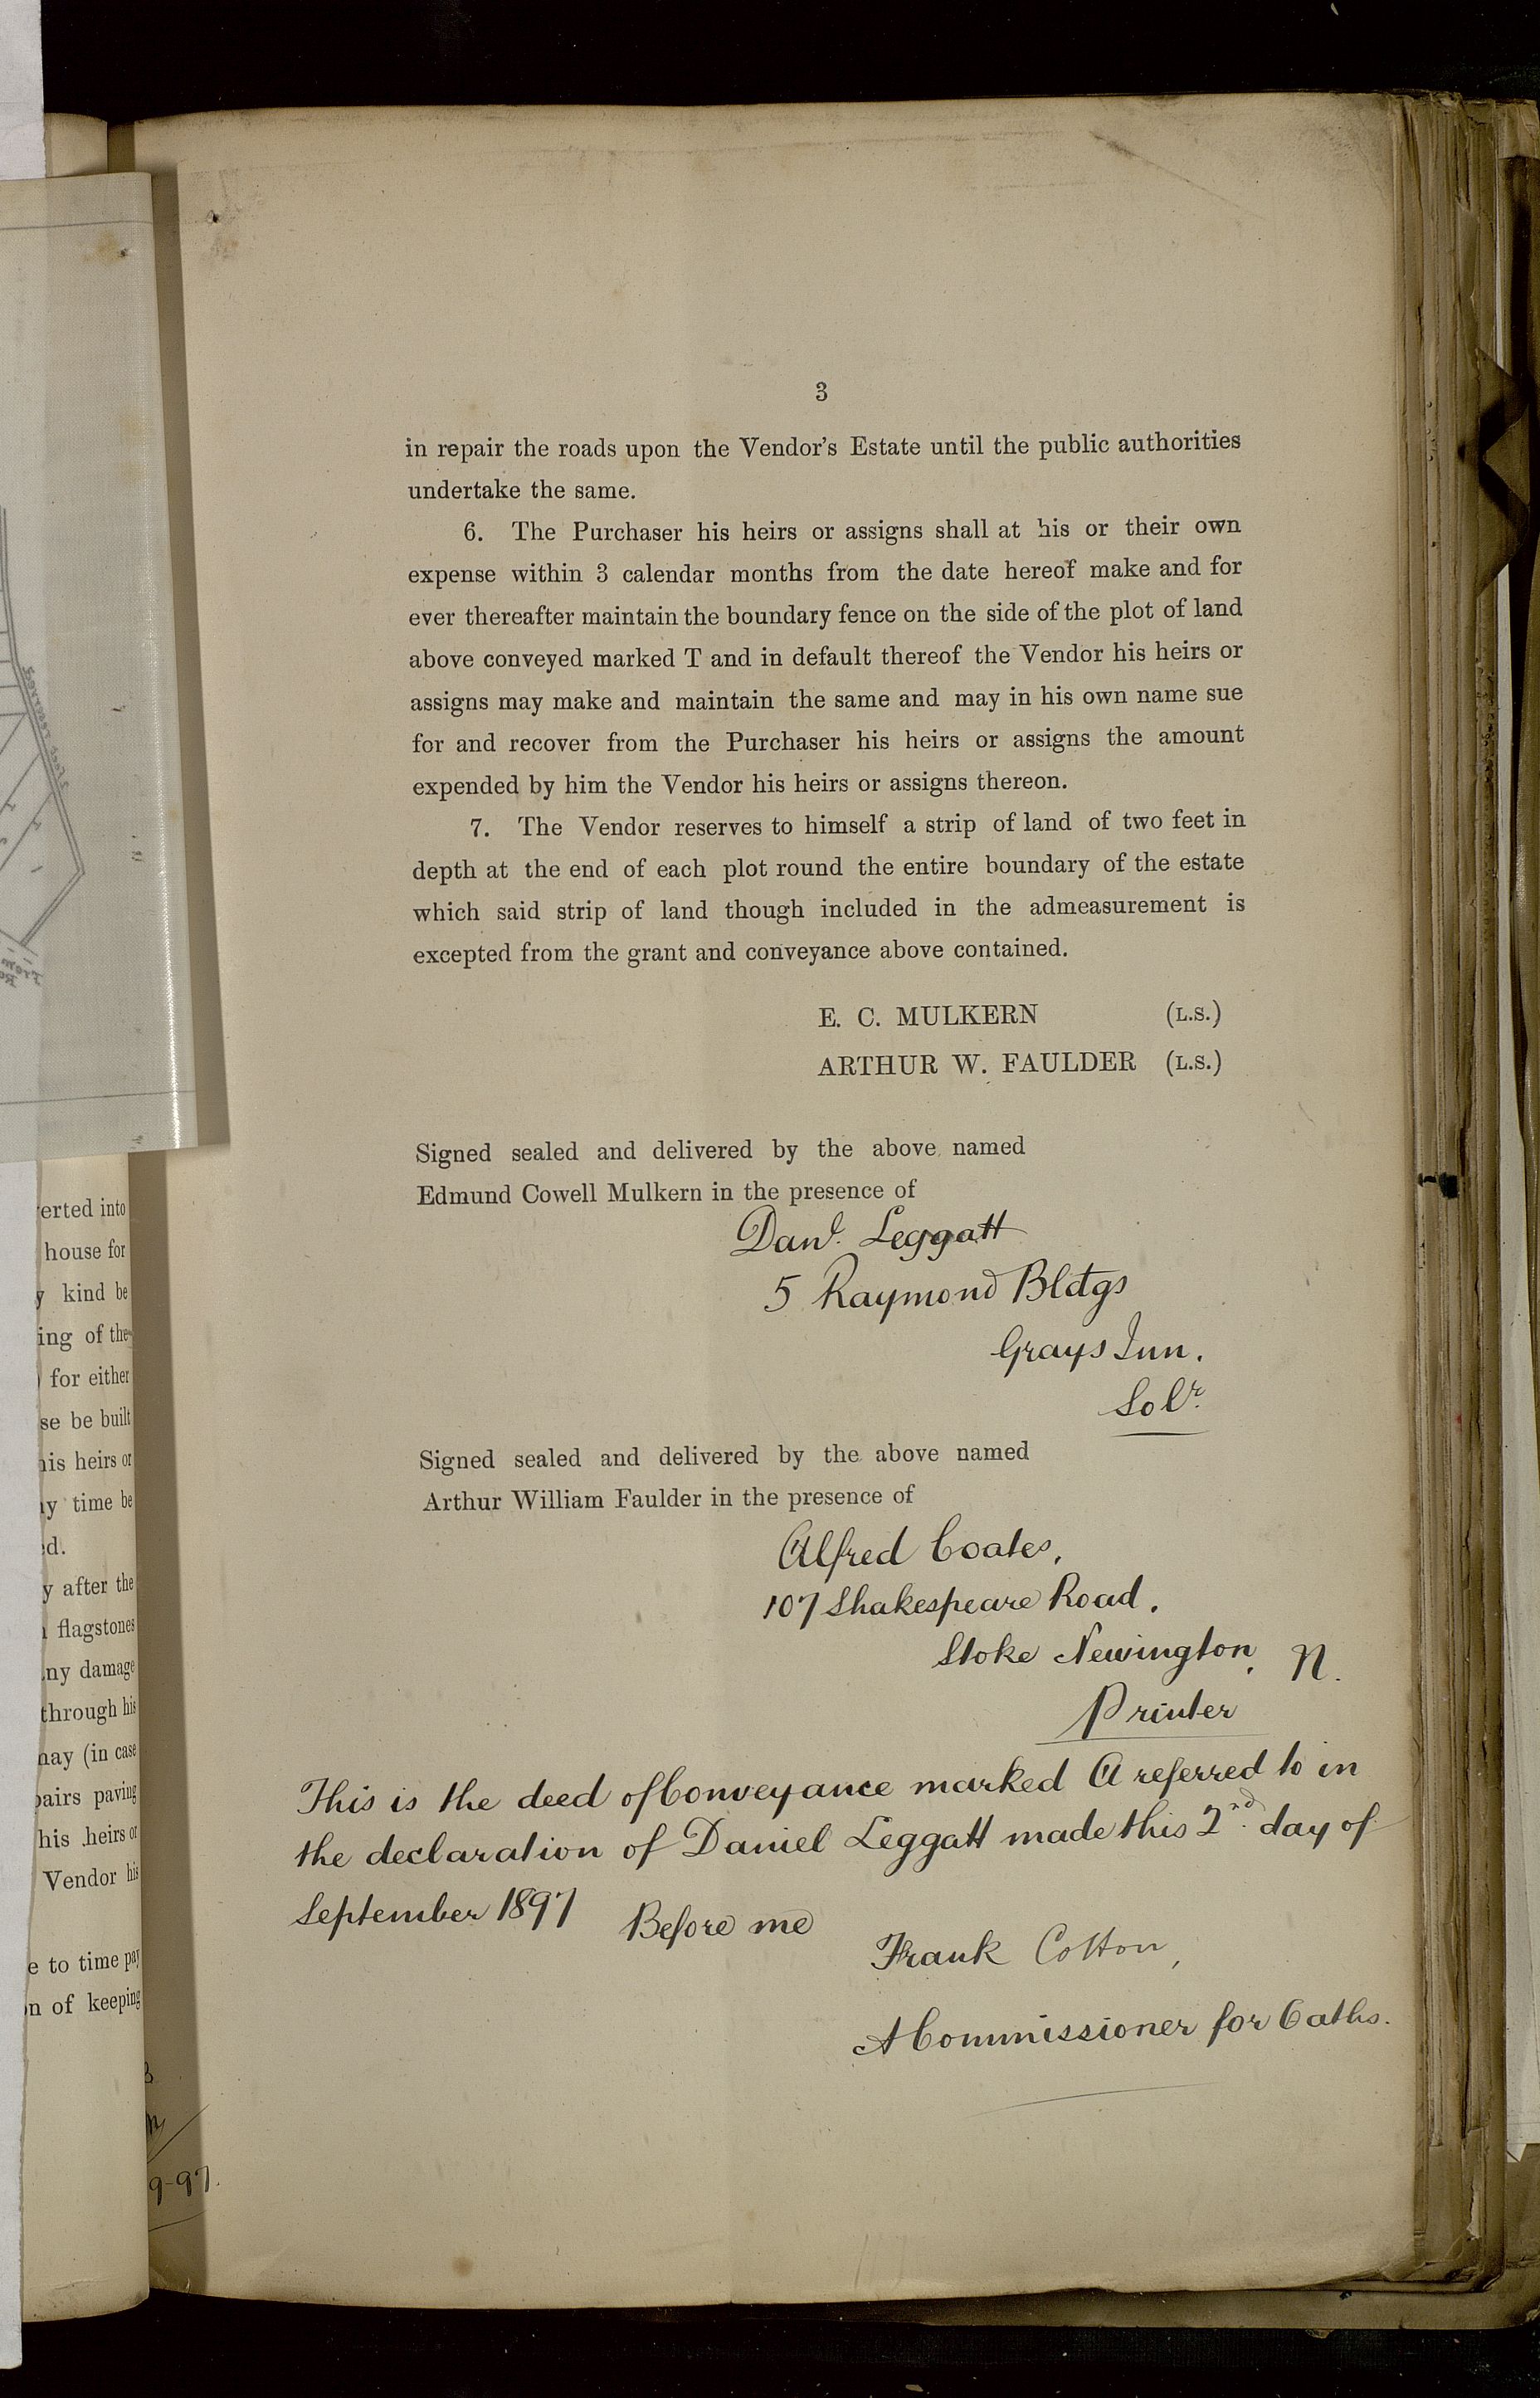 3
in repair the roads upon the Vendor's Estate until the public authorities
undertake the same.
6. The Purchaser his heirs or assigns shall at his or their own
expense within 3 calendar months from the date hereof make and for
ever thereafter maintain the boundary fence on the side of the plot of land
above conveyed marked T and in default thereof the Vendor his heirs or
assigns may make and maintain the same and may in his own name sue
for and recover from the Purchaser his heirs or assigns the amount
expended by him the Vendor his heirs or assigns thereon.
7. The Vendor reserves to himself a strip of land of two feet in
depth at the end of each plot round the entire boundary of the estate
which said strip of land though included in the admeasurement is
excepted from the grant and conveyance above contained.
E. C. MULKERN (L.S.)
ARTHUR W. FAULDER (L.S.)
Signed sealed and delivered by the above named
Edmund Cowell Mulkern in the presence of
Danl. Leggatt
5 Raymond Bldgs
Grays Inn.
Solr.
Signed sealed and delivered by the above named
Arthur William Faulder in the presence of
Alfred Coates,
107 Shakespeare Road.
Stoke Newington. N.
Printer
This is the deed of Conveyance marked A referred to in
the declaration of Daniel Leggatt made this 2nd. day of
September 1897 Before me
Frank Cotton,
A Commissioner for Oaths.
erted into
house for
kind be
ing of the
for either
se be built
his heirs or
time be
ed.
y after the
flagstones
ny damage
through his
may (in case
pairs paving
his heirs or
Vendor his
e to time pay
on of keeping
9-97.